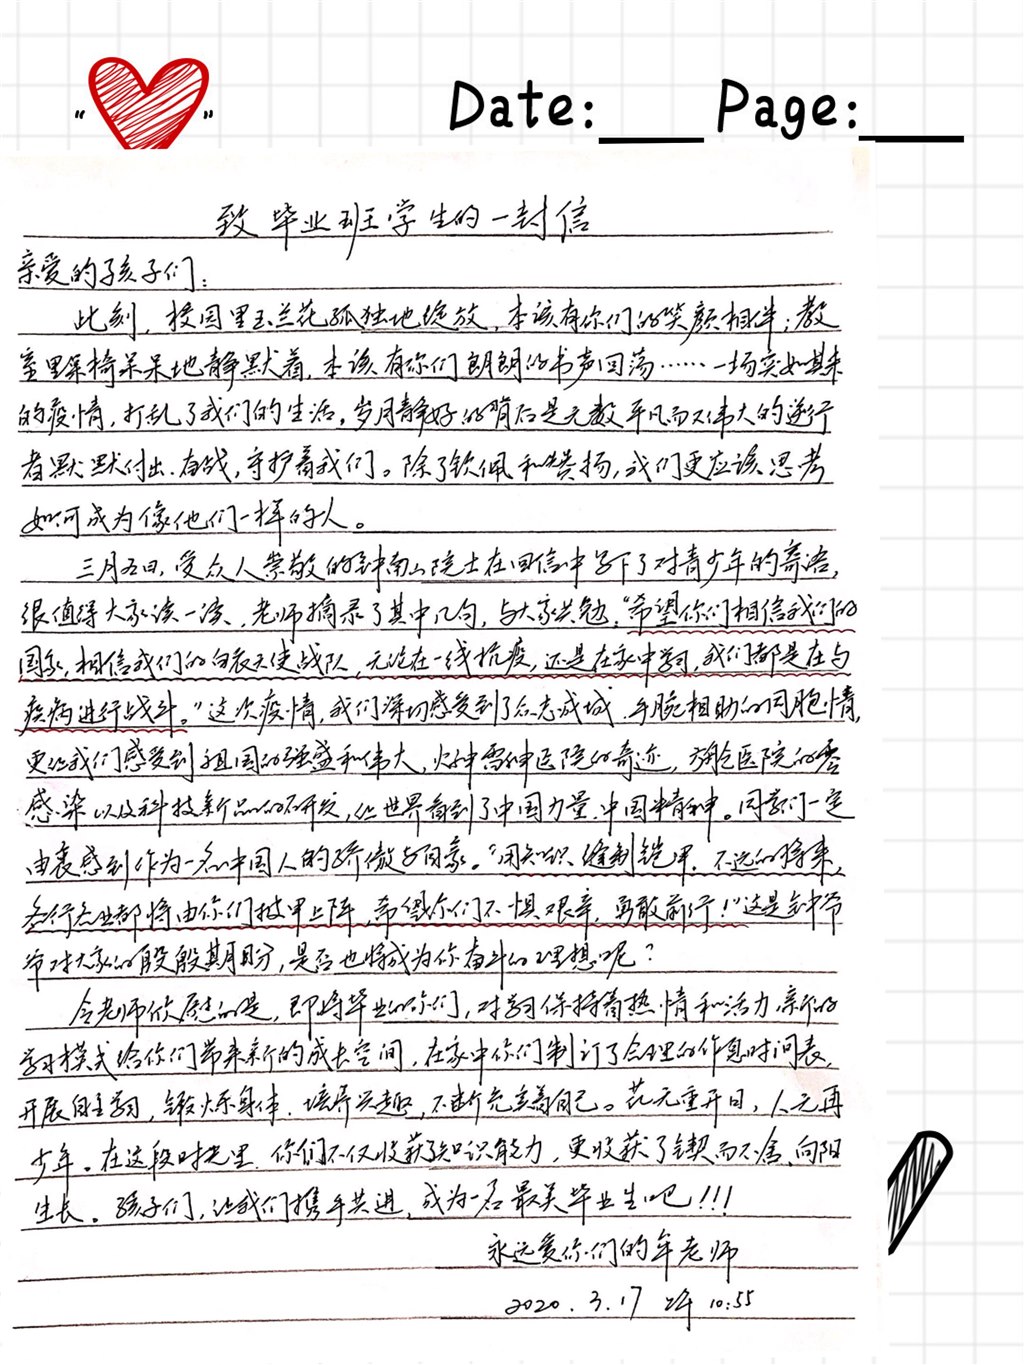 Date: Page:
致毕业班学生的一封信
亲爱的孩子们：
此刻，校园里玉兰花孤独地绽放，本该有你们的笑颜相伴；教
室里桌椅呆呆地静默着，本该有你们朗朗的书声回荡……一场突如其来
的疫情，打乱了我们的生活。岁月静好的背后是无数平凡而又伟大的逆行
者默默付出、奋战，守护着我们。除了钦佩和赞扬，我们更应该思考
如何成为像他们一样的人。
三月五日，受众人崇敬的钟南山院士在回信中写下了对青少年的寄语，
很值得大家读一读，老师摘录了其中几句，与大家共勉，“希望你们相信我们的
国家，相信我们的白衣天使战队，无论在一线抗疫，还是在家中学习，我们都是在与
疾病进行战斗。”这次疫情，我们深切感受到了众志成城、手腕相助的同胞情，
更让我们感受到祖国的强盛和伟大，火神雷神医院的奇迹，方舱医院的零
感染以及科技新品的研发，让世界看到了中国力量、中国精神。同学们一定
由衷感到作为一名中国人的骄傲与自豪。“用知识缝制铠甲，不远的将来，
各行各业都将由你们披甲上阵，希望你们不惧艰辛，勇敢前行！”这是钟爷
爷对大家的殷殷期盼，是否也将成为你奋斗的理想呢？
令老师欣慰的是，即将毕业的你们，对学习保持着热情和活力，新的
学习模式给你们带来新的成长空间，在家中你们制订了合理的作息时间表，
开展自主学习，锻炼身体，培养兴趣，不断完善着自己。花无重开日，人无再
少年。在这段时光里，你们不仅收获了知识能力，更收获了锲而不舍、向阳
生长。孩子们，让我们携手共进，成为一名最美毕业生吧！！！
永远爱你们的年老师
2020.3.17 上午 10:55